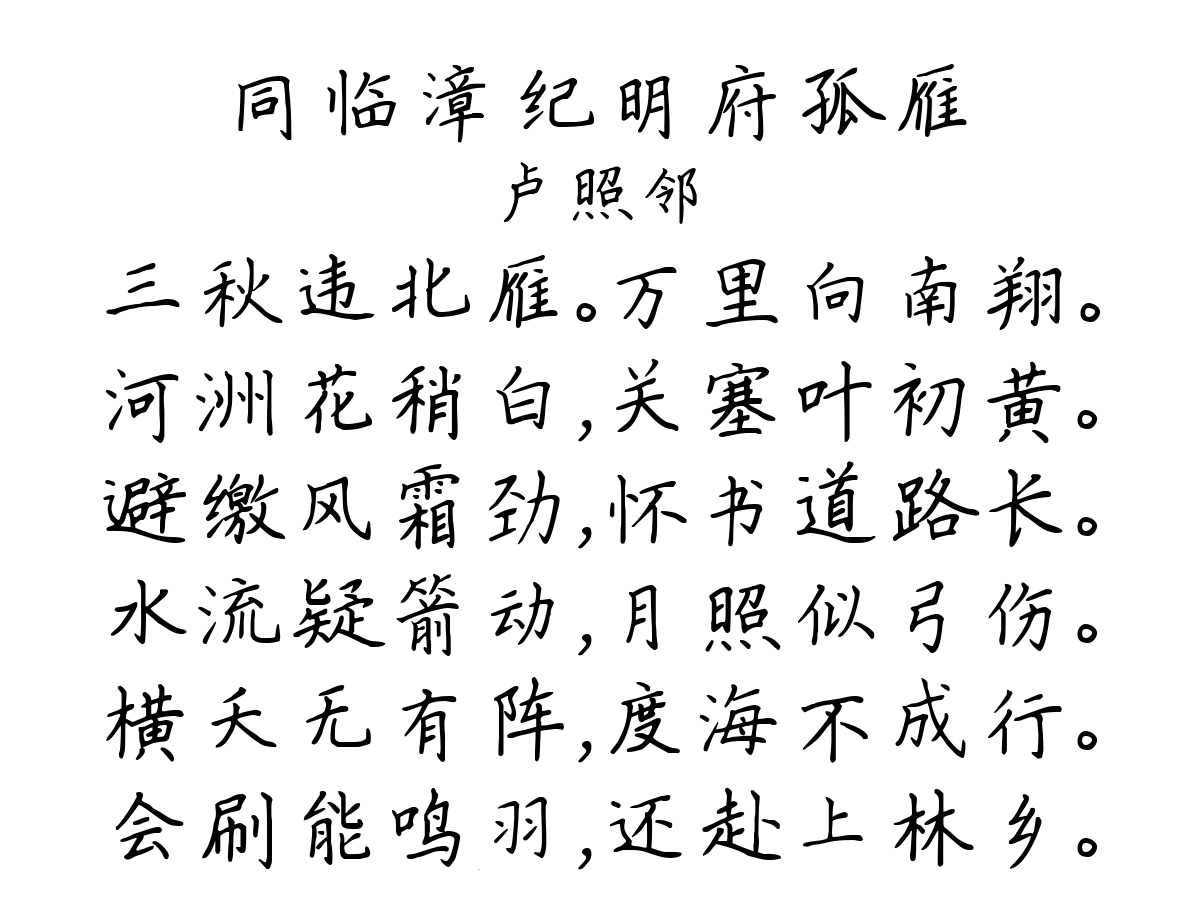 同临漳纪明府孤雁
卢照邻
三秋违北雁。万里向南翔。
河洲花稍白,关塞叶初黄。
避缴风霜劲,怀书道路长。
水流疑箭动,月照似弓伤。
横夭无有阵,度海不成行。
会刷能鸣羽,还赴上林乡。